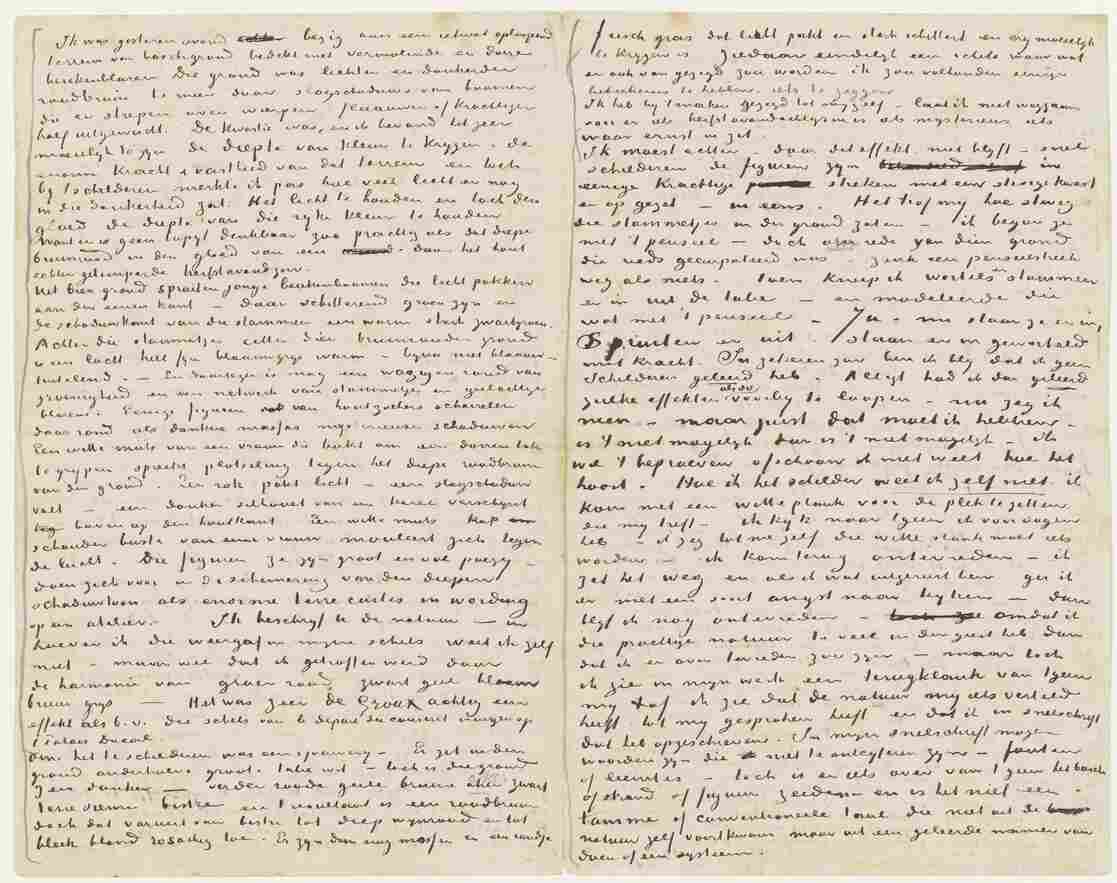 Ik was gisteren avond bezig aan een ietwat oploopend
terrein van boschgrond bedekt met vermolmde en dorre
beukenbladeren. Die grond was lichter en donkerder
roodbruin te meer door slagschaduws van boomen
die er streepen over wierpen, flaauwer of krachtiger
half uitgewischt. De kwestie was, en ik bevond het zeer
moeielijk te zijn de diepte van kleur te krijgen. de
enorme kracht & vastheid van dat terrein en toch
bij 't schilderen merkte ik pas hoe veel licht er nog
in die donkerheid zat. Het licht te houden en toch den
gloed de diepte van die rijke kleur te houden
Want er is geen tapijt denkbaar zoo prachtig als dat diepe
bruinrood in den gloed van een door het hout
echter getemperde herfstavondzon.
Uit dien grond spruiten jonge beukenboomen die licht pakken
aan den eenen kant – daar schitterend groen zijn en
de schaduwkant van die stammen een warm sterk zwartgroen.
Achter die stammetjes achter dien bruinrooden grond
is een lucht heel fijn blaauwgrijs warm – bijna niet blaauw –
tintelend. – En daartegen is nog een wazigen rand van
groenigheid en een netwerk van stammetjes en geelachtige
bladeren. Eenige figuren van houtzoekers scharrelen
daar rond als donkere massa's mysterieuse schaduwen
Een witte muts van een vrouw die bukt om een dorren tak
te grijpen spreekt plotseling tegen het diepe roodbruin
van den grond. Een rok pakt licht – een slagschaduw
valt – een donker silhouet van een kerel verschijnt
boven op den houtkant. Een witte muts kap
schouder buste van eene vrouw mouleert zich tegen
de lucht. Die figuren ze zijn groot en vol poezy –
doen zich voor in de schemering van den diepen
schaduwtoon als enorme terre cuites in wording
op een atelier. Ik beschrijf U de natuur – in
hoever ik die weergaf in mijne schets weet ik zelf
niet – maar wel dat ik getroffen werd door
de harmonie van groen rood zwart geel blaauw
bruin grijs – Het was zeer de Grouxachtig een
effekt als b.v. die schets van le depart du conscrit vroeger op
't Palais Ducal.
Om het te schilderen was een spannerij – Er zit in den
grond anderhalve groote tube wit – toch is die grond
zeer donker – verder roode gele bruine oker zwart
terra sienna bistre en 't resultaat is een roodbruin
doch dat varieert van bistre tot diep wijnrood en tot
bleek blond rosachtig toe. Er zijn dan nog mossen en een randje
frisch gras dat licht pakt en sterk schittert en erg moeielijk
te krijgen is. Ziedaar eindelijk een schets waar wat
er ook van gezegd zou worden ik zou volhouden eenige
beteekenis te hebben. iets te zeggen
Ik heb bij 't maken gezegd tot mijzelf – laat ik niet weggaan
voor er iets herfstavondachtigs in is iets mysterieus iets
waar ernst in zit.
Ik moest echter – daar dit effekt niet blijft – snel
schilderen de figuren zijn in
eenige krachtige streken met een stevige kwast
er op gezet – in eens. Het trof mij hoe stevig
die stammetjes in den grond zaten – ik begon ze
met 't penseel – doch door reden van dien grond
die reeds geempateerd was – zonk een penseelstreek
weg als niets. Toen kneep ik wortels en stammen
er in uit de tube – en modeleerde die
wat met 't penseel. – Ja – nu staan ze er in,
Spruiten er uit – staan er in geworteld
met kracht. In zekeren zin ben ik blij dat ik geen
schilderen geleerd heb. Allicht had ik dan geleerd
zulke effekten als dit voorbij te loopen – nu zeg ik
neen – maar juist dat moet ik hebben –
is 't niet mogelijk dan is 't niet mogelijk – ik
wil 't beproeven ofschoon ik niet weet hoe het
hoort. Hoe ik het schilder weet ik zelf niet. ik
kom met een witte plank voor de plek te zitten
die mij treft – ik kijk naar 't geen ik voor oogen
heb – ik zeg tot me zelf die witte plank moet iets
worden – ik kom terug ontevreden – ik
zet het weg en als ik wat uitgerust ben ga ik
er met een soort angst naar kijken – dan
blijf ik nog ontevreden – omdat ik
die prachtige natuur te veel in den geest heb dan
dat ik er over tevreden zou zijn – maar toch
ik zie in mijn werk een terugklank van 't geen
mij trof – ik zie dat de natuur mij iets verteld
heeft tot mij gesproken heeft en dat ik in snelschrift
dat heb opgeschreven. In mijn snelschrift mogen
woorden zijn die niet te ontcijferen zijn – fouten
of leemtes – toch is er iets over van 't geen het bosch
of strand of figuur zeiden – en is het niet een
tamme of conventioneele taal die niet uit de
natuur zelf voortkwam maar uit een geleerde manier van
doen of een systeem.